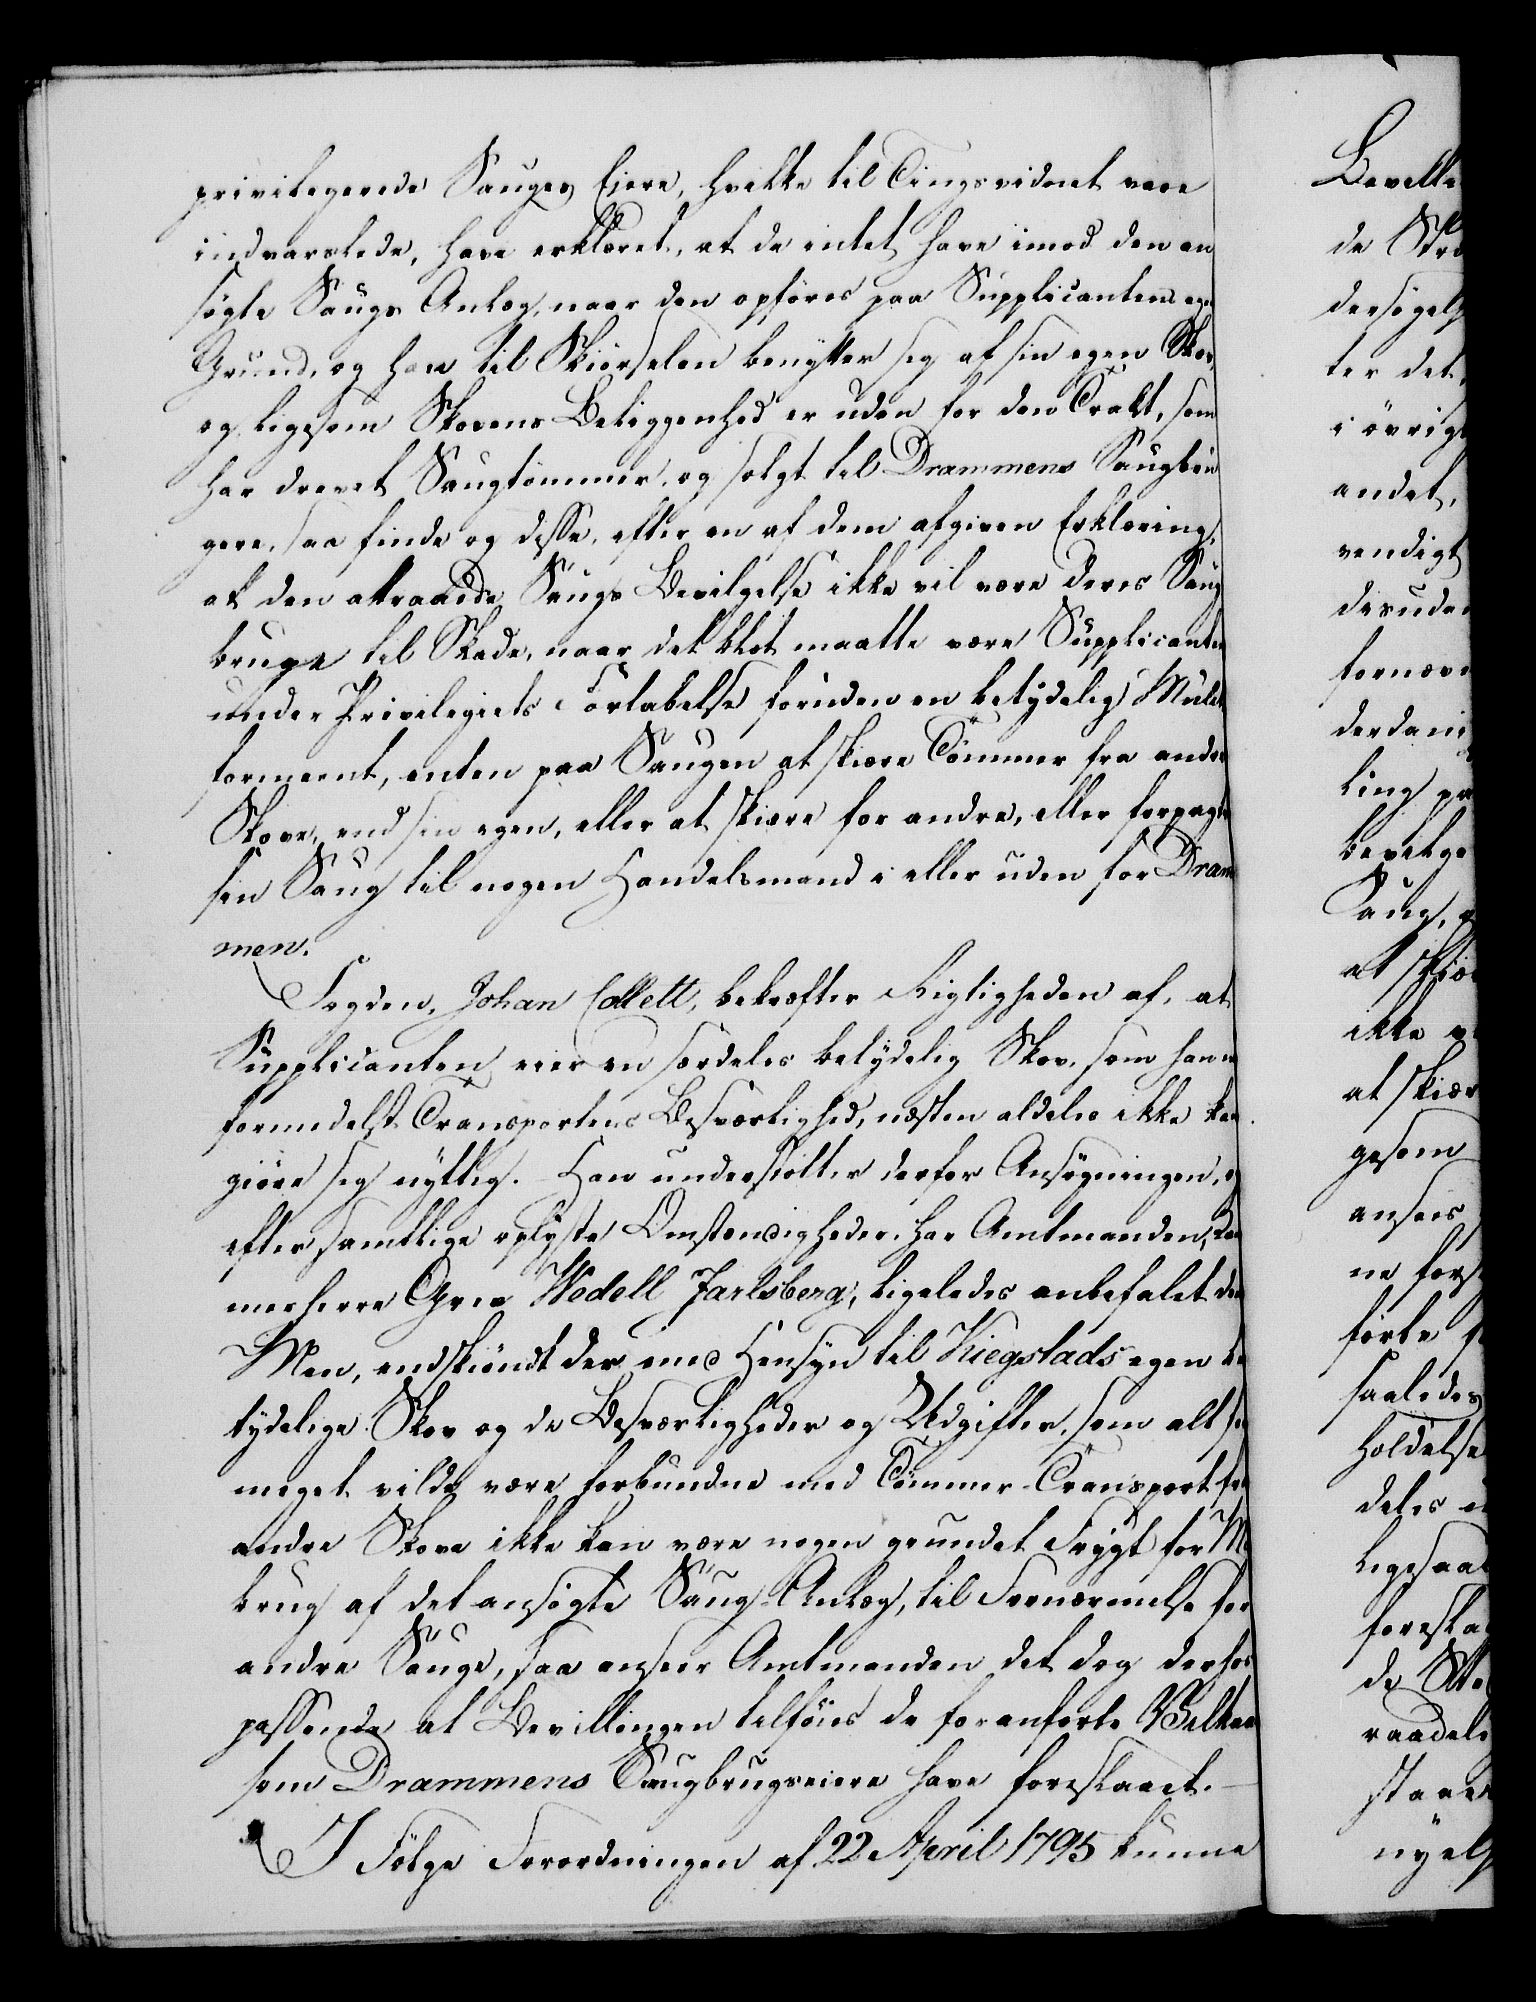 privilegerede Sauges Eiere, hvilke til Tingsvidnet vare
indvarslede, have erklæret, at de intet have imod den an
søgte Saugs Anlæg, naar den opføres paa Supplicantens egen
Grund, og han til Skiørselen benytter sig af sin egen Skov,
og ligesom Skovens Beliggenhed er uden for den Trakt, som
har drevet Saugtømmer, og solgt til Drammens Saugbru
gere, saa finde og disse, efter en af dem afgiven Erklæring,
at den attraaede Saugs Bevilgelse ikke vil være deres Saug
bruge til Skade, naar det blot maatte være Supplicanten
under Privilegiets Fortabelse foruden en betydelig Mulct
formeent, enten paa Saugen at skiære Tømmer fra andre
Skove, end sin egen, eller at skiære for andre, eller forpagte
sin Saug til nogen Handelsmand i eller uden for Dram
men.
Fogden, Johan Collett, bekræfter Rigtigheden af, at
Supplicanten eier en særdeles betydelig Skov, som han
formedelst Transportens Besværlighed, næsten aldeles ikke kan
giøre sig nyttig. Han understøtter derfor Ansøgningen, og
efter samtlige oplyste Omstændigheder har Amtmanden, Kam
merherre Greve Wedell Jarlsberg, ligeledes anbefalet den
Men, endskiøndt der med Hensyn til Kiegstads egen be
tydelige Skov og de Besværligheder og Udgifter, som alt for
meget vilde være forbundne med Tømmer-Transport fra
andre Skove ikke kan være nogen grundet Frygt for Mis
brug af det ansøgte Saug-Anlæg, til Fornærmelse for
andre Sauge, saa anseer Amtmanden det dog derhos
passende at Bevillingen tilføies de foranførte Vilkaar
som Drammens Saugbrugseiere have foreslaaet. –
I Følge Forordningen af 22 April 1795 kunne
Bevilli
de St
dersøgels
ter det,
i øvrigt
andet,
vendigt
desuden
fornær
derdani
ling pa
bevilge
Saug,
at skiær
ikke
at skiær
gesom
ansees
ne fors
førte
saaledes
holdelse
deles
ligesaa
foresla
de
raadels
staae
nyels